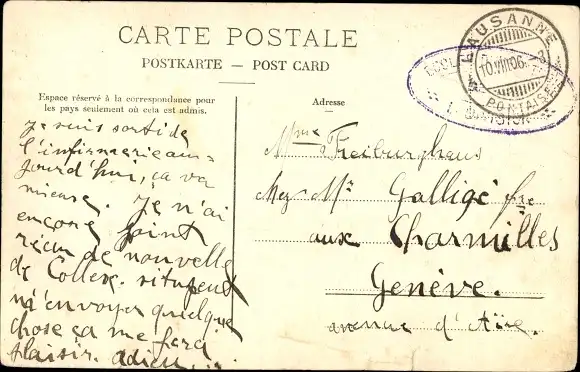 CARTE POSTALE
POSTKARTE — POST CARD
Espace réservé à la correspondance pour
les pays seulement où cela est admis.
Adresse
LAUSANNE
10.VIII.06.
PONTAISE
Je suis sorti de
l'infirmerie aujourd'hui, ça va
mieux. Je n'ai
encore point
récu de nouvelle
de Collex. si tu peux
m'envoyer quelque
chose ça me fera
plaisir. adieu...
Mme Freiburghaus
chez Mr Galligé fre
aux Charmilles
Genève.
avenue d'Aïre.